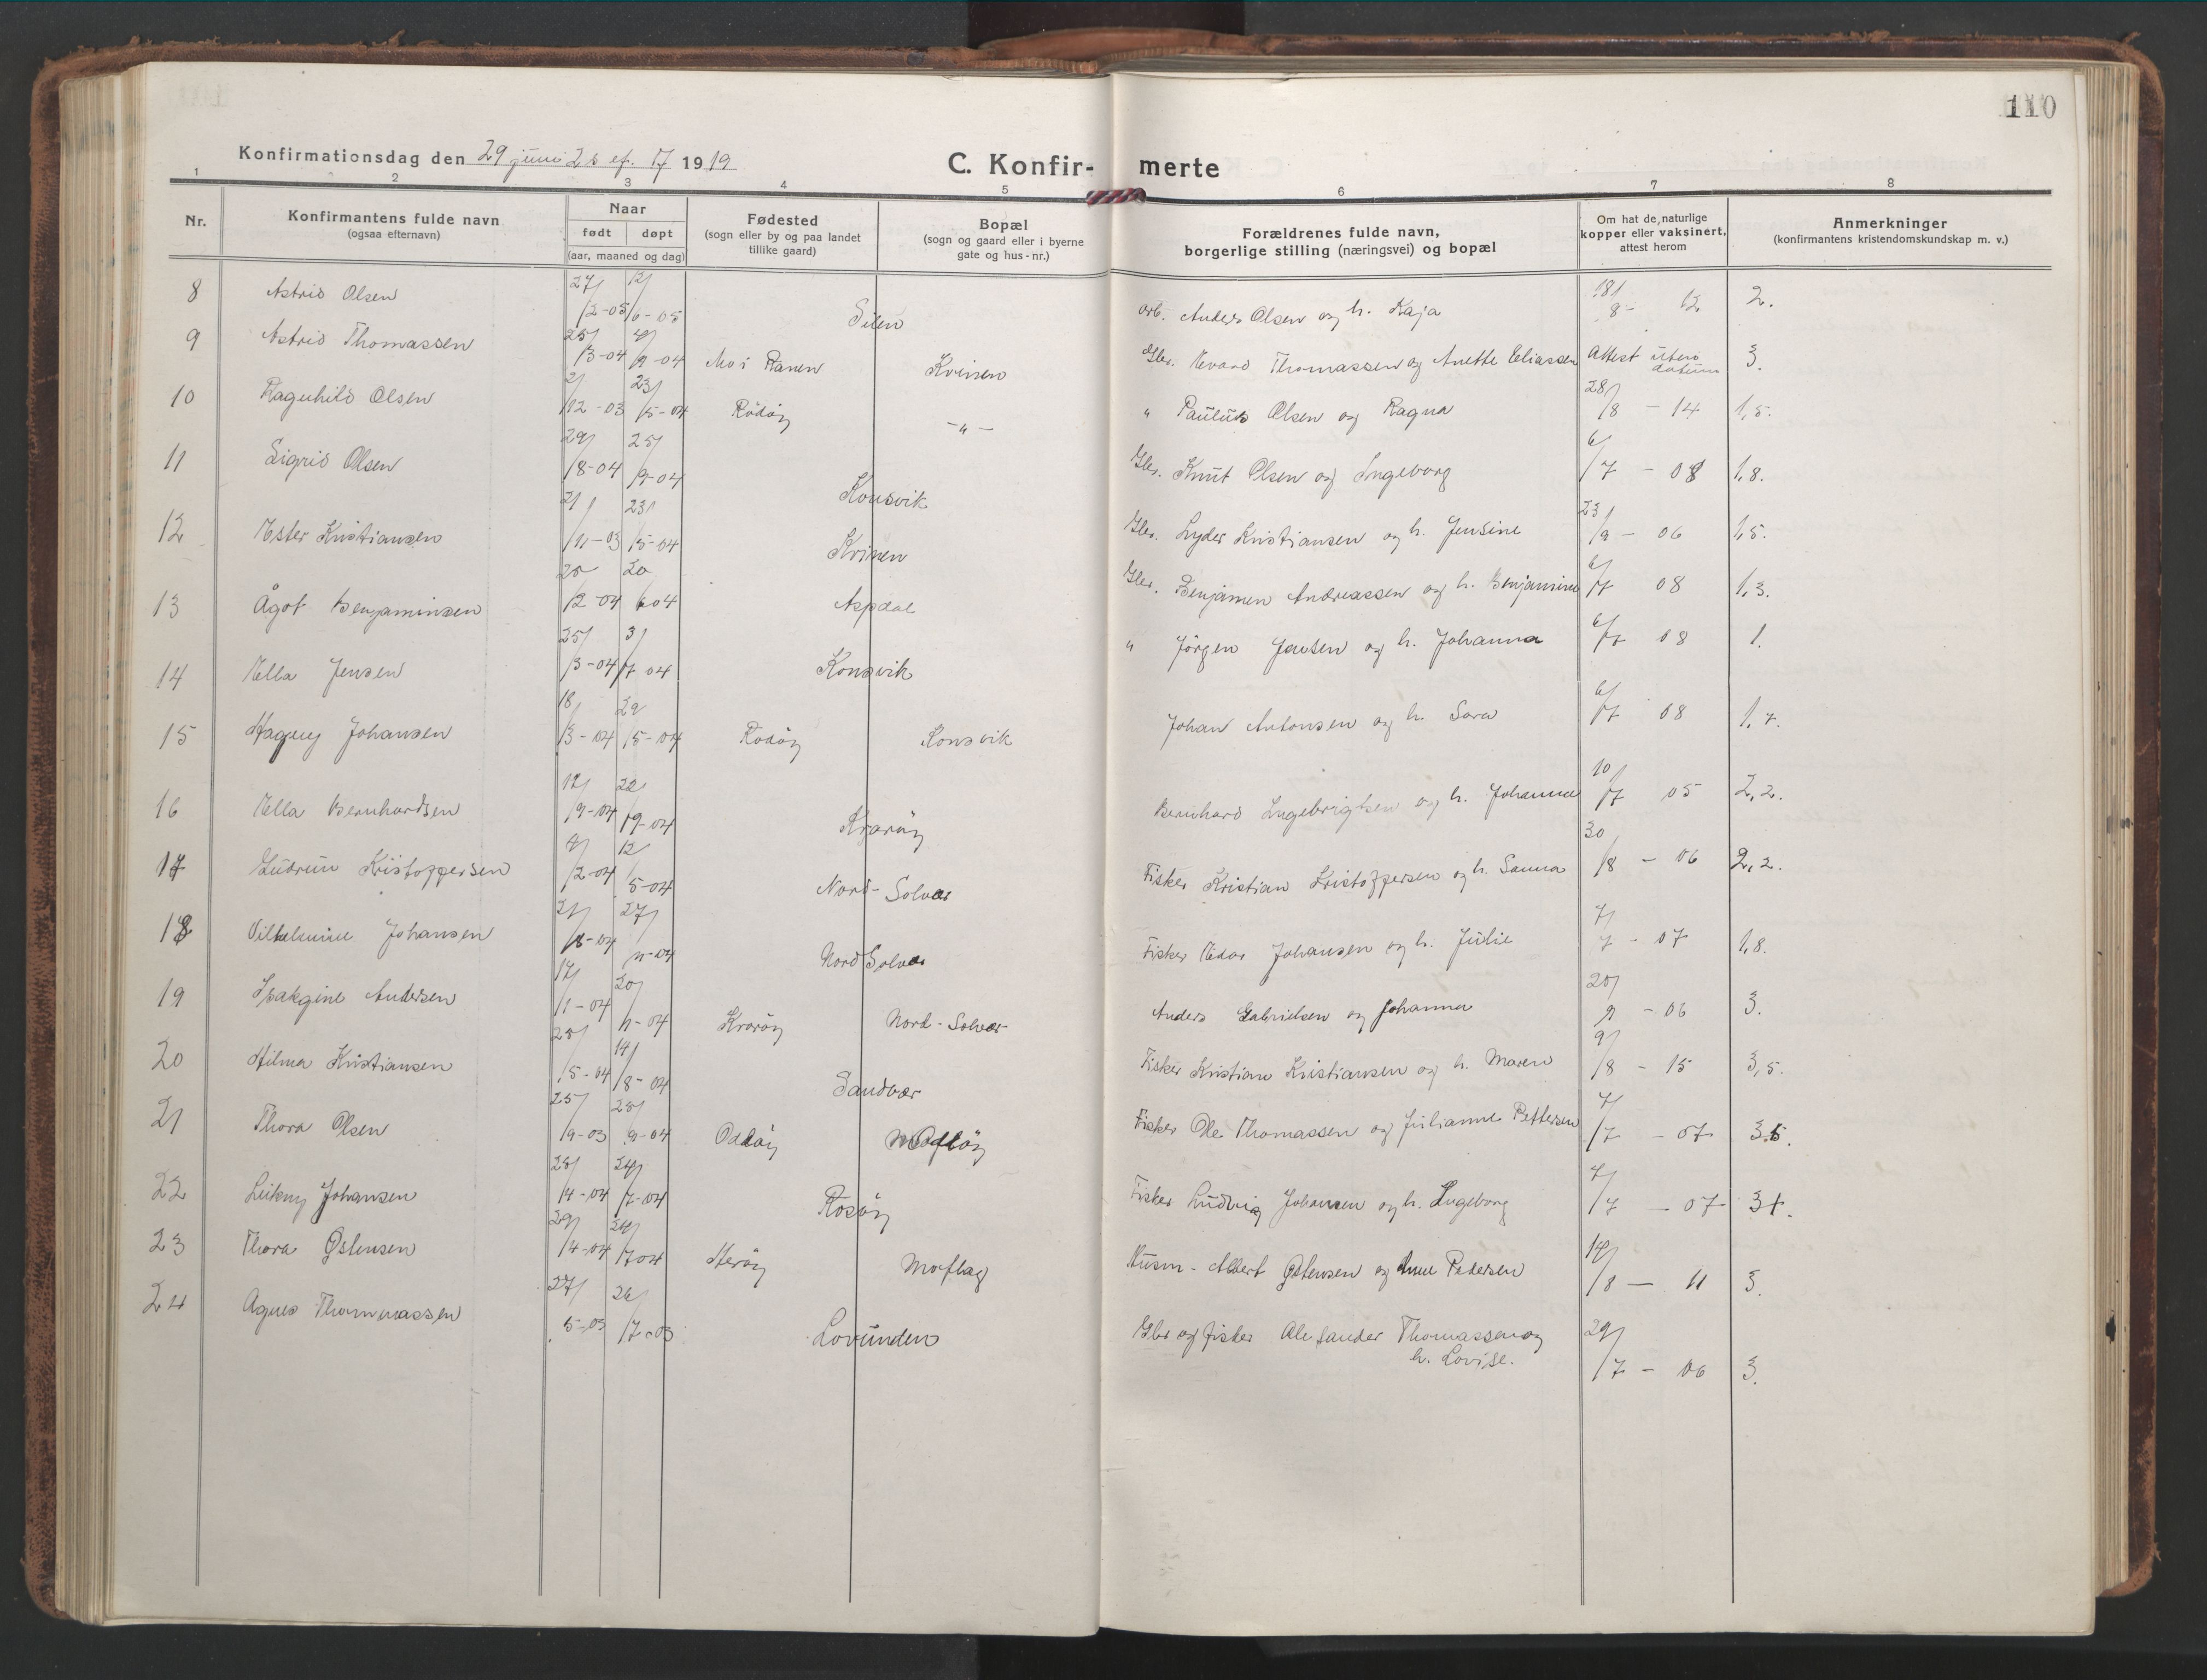 110
Konfirmationsdag den 29 juni 2 s ef. 17 1919
C. Konfir- merte
1 2 3 4 5 6 7 8
Nr.
Konfirmantens fulde navn
(ogsaa efternavn)
Naar
født døpt
(aar, maaned og dag)
Fødested
(sogn eller by og paa landet
tillike gaard)
Bopæl
(sogn og gaard eller i byerne
gate og hus-nr.)
Forældrenes fulde navn,
borgerlige stilling (næringsvei) og bopæl
Om hat de naturlige
kopper eller vaksinert,
attest herom
Anmerkninger
(konfirmantens kristendomskundskap m. v.)
8 Astrid Olsen 27/2-05 12/6-05 Silen arb. Anders Olsen og h. Kaja 18/8- 12 2.
9 Astrid Thomassen 25/3-04 4/9-04 Mo i Ranen Kvinen Gbr. Evard Thomassen og Anette Eliassen Attest uten datum 3.
10 Ragnhild Olsen 2/12-03 23/5-04 Rödöy -"- " Paulus Olsen og Ragna 28/8 - 14 1,5.
11 Sigrid Olsen 29/8-04 25/9-04 Konsvik Gbr. Knut Olsen og Ingeborg 6/7 - 08 1,8.
12 Ester Kristiansen 21/11-03 23/5-04 Kvinen Gbr. Lyder Kristiansen og h. Jensine 23/9 - 06 1,5.
13 Ågot Benjaminsen 20/2-04 20/6 04 Aspdal Gbr. Benjamen Andreassen og h. Benjamine 6/7 08 1,3.
14 Ella Jensen 25/3-04 3/7 04 Konsvik " Jörgen Jensen og h. Johanna 6/7 08 1.
15 Hagny Johansen 18/3-04 29/5-04 Rödöy Konsvik Johan Antonsen og h. Sara 6/7 08 1,7.
16 Ella Bernhardsen 12/9-04 22/19-04 Kvaröy Bernhard Ingebrigtsen og h. Johanna 10/7 05 2,2.
17 Gudrun Kristoffersen 4/2-04 12/5-04 Nord-Solvær Fisker Kristian Kristoffersen og h. Sanna 30/8 - 06 2,2.
18 Vilhelmine Johansen 21/8-04 27/11-04 Nord Solvær Fisker Edor Johansen og h. Julie 7/7 - 07 1,8.
19 Isakgine Andersen 17/1-04 20/11-04 Kvaröy Nord-Solvær Anders Gabrielsen og Johanna 20/9 - 06 3.
20 Hilma Kristiansen 28/5-04 14/8-04 Sandvær Fisker Kristian Kristiansen og h. Maren 9/8 - 15 3,5.
21 Thora Olsen 25/9-03 25/9-04 Oddöy Fisker Ole Thomassen og Julianne Pettersen 7/7 - 07 3.5.
22 Leikny Johansen 28/4-04 24/7-04 Rosöy Fisker Ludvig Johansen og h. Ingeborg 7/7 - 07 3+.
23 Thora Østensen 29/4-04 24/7 04 Heröy Moflag Husm - Albert Østensen og Anne Pedersen 14/8 - 11 3.
24 Agnes Thommassen 27/5-03 26/7-03 Lovunden Gbr og fisker Alexander Thomassen og
h. Lovise. 29/7 - 06 3.